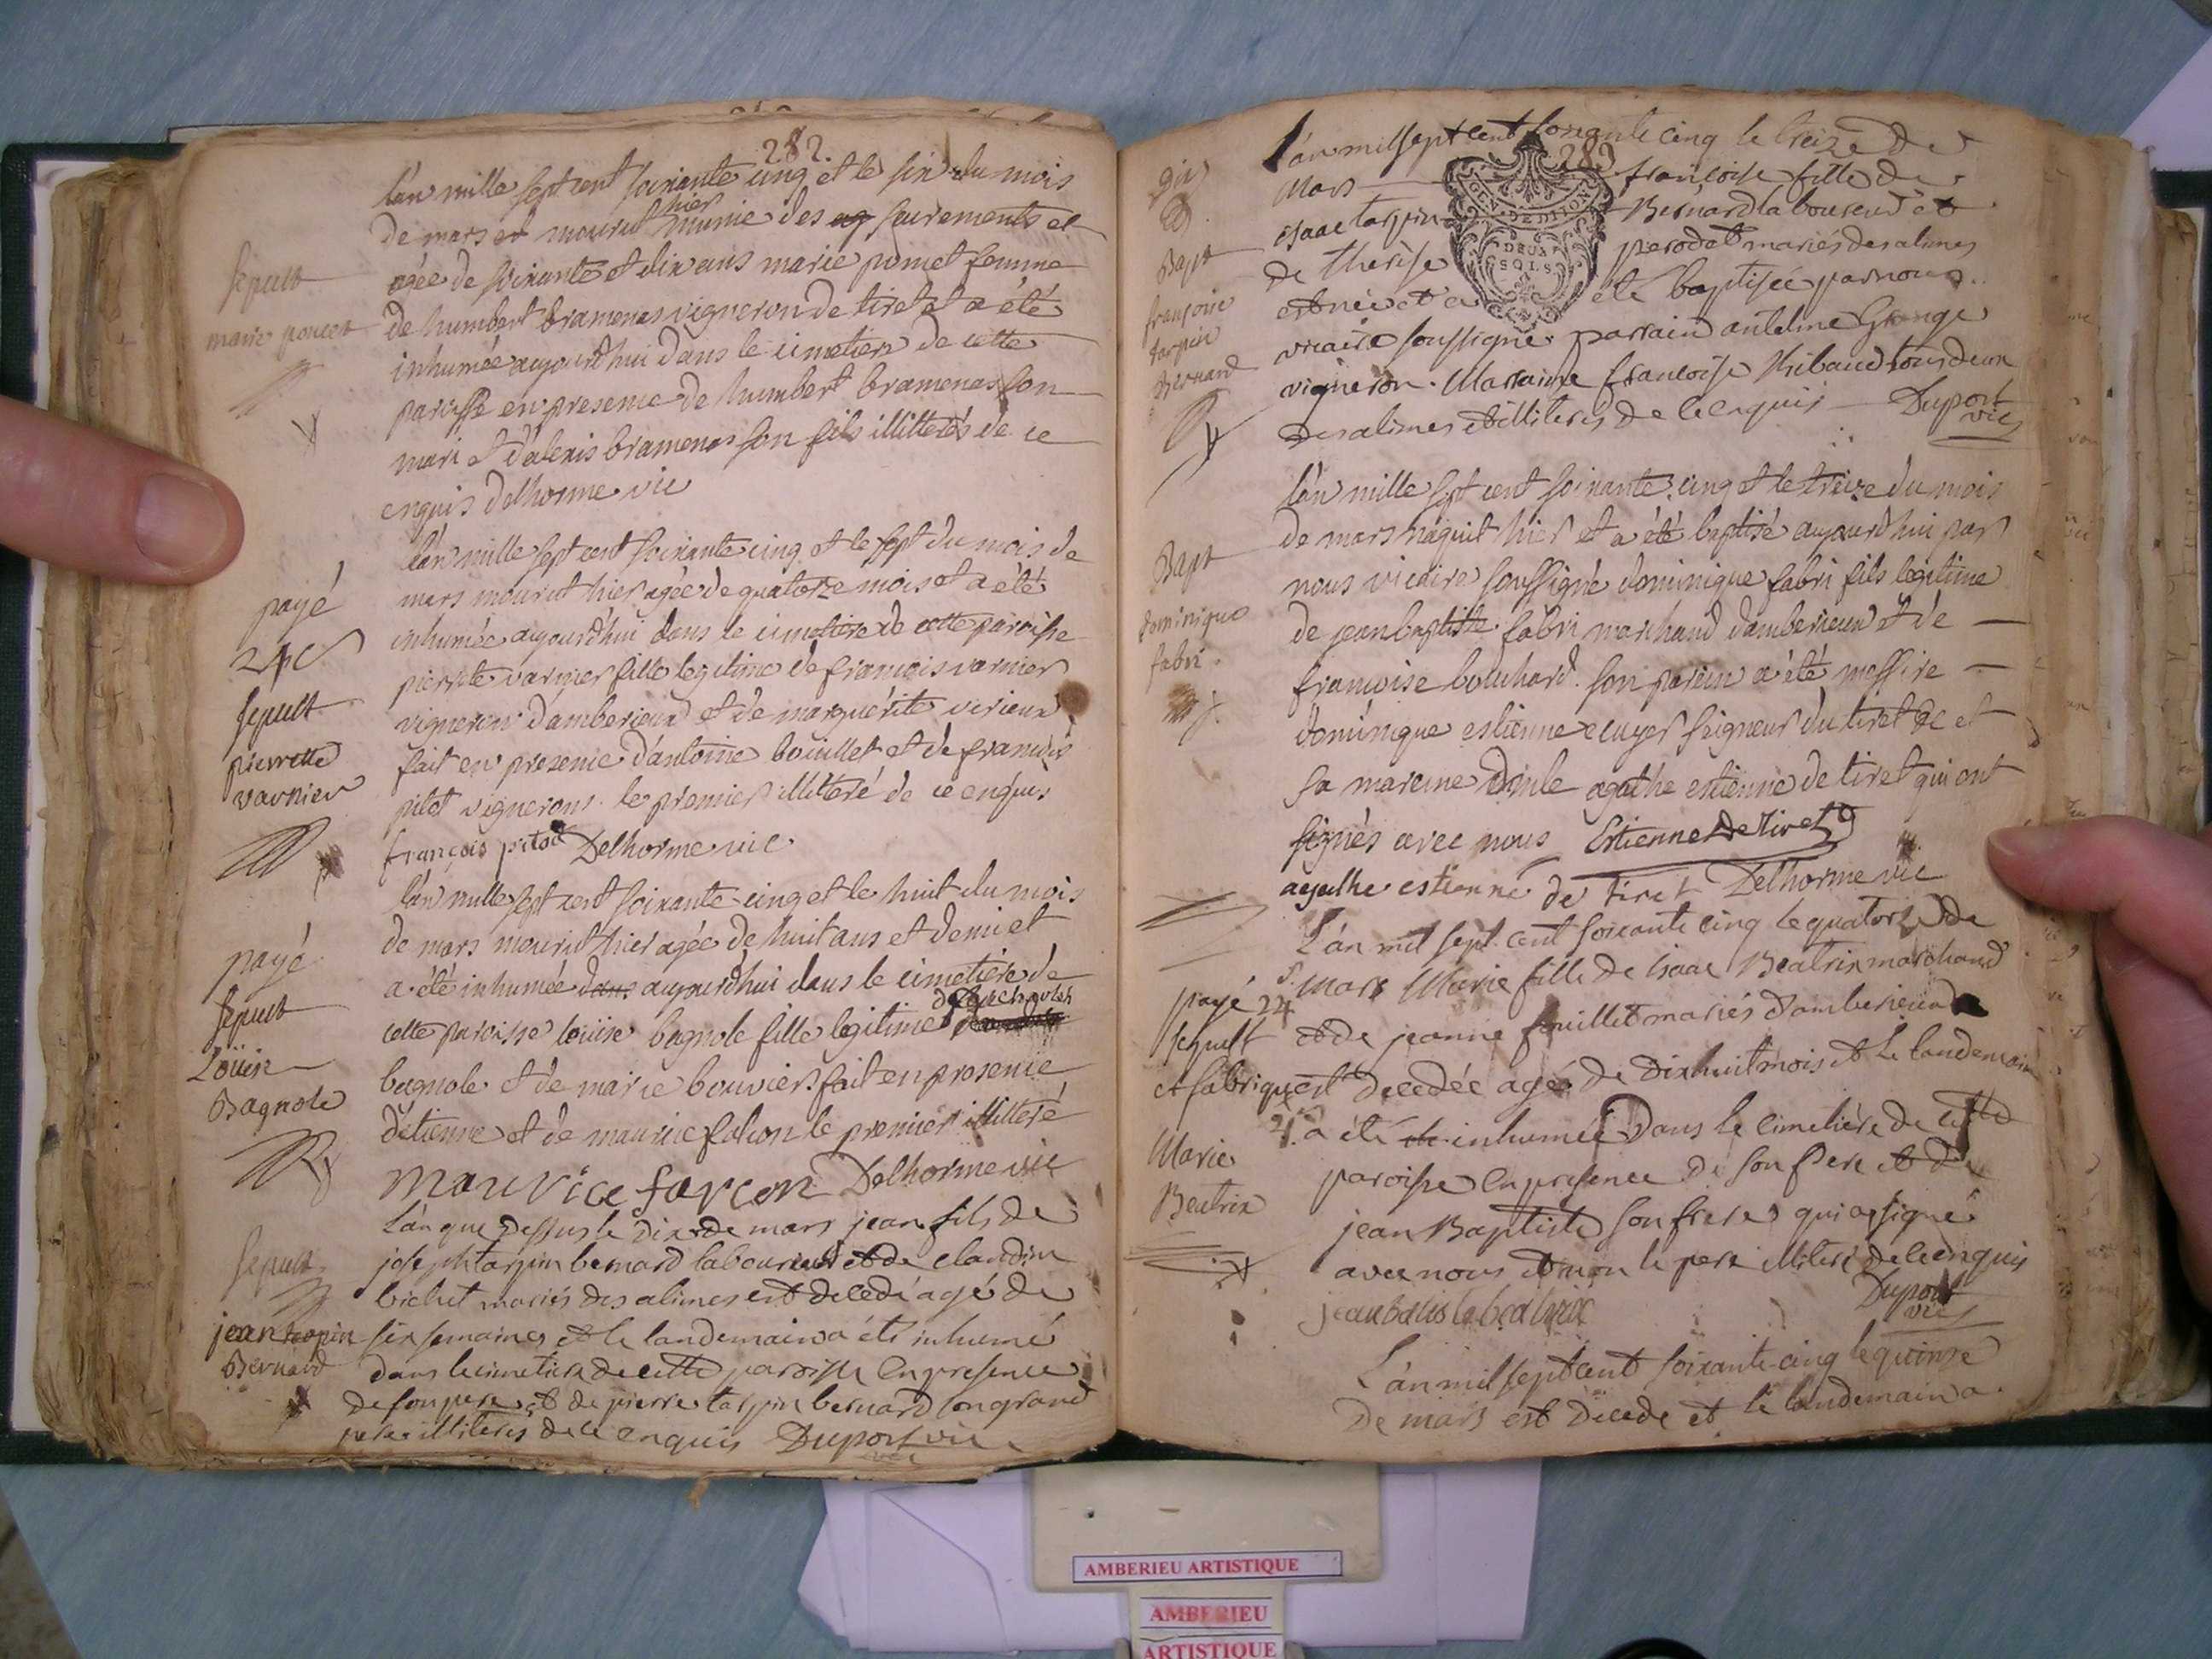 282.
l'an mille sept cent soixante cinq et le six du mois
de mars et mourut hier munie des sacrements et
agée de soixante et dix ans marie pomet femme
de humbert bramenas vigneron de tiret et a été
inhumée aujourd'hui dans le cimetiere de cette
paroisse en presence de humbert bramenas son
mari et d'alexis bramenas son fils illitterés de ce
enquis delhorme vic
Sepult
marie poncet
l'an mille sept cent soixante cinq et le sept du mois de
mars mourut hier agée de quatorze mois et a été
inhumée aujourd'hui dans le cimetiere de cette paroisse
pierrete varnier fille legitime de francois varnier
vigneron d'amberieux et de marguérite verieux
fait en presence d'antoine bouillet et de francois
pitot vignerons le premier illiteré de ce enquis
françois pitod Delhorme vic
payé
Sepult
pierrette
varnier
l'an mille sept cent soixante cinq et le huit du mois
de mars mourut hier agée de huit ans et demi et
a été inhumée dans aujourd'hui dans le cimetiere de
cette paroisse louise bagnole fille legitime
bagnole et de marie bouvier fait en presence
d'étienne et de maurice falcon le premier illitteré
maurice farcon Delhorme vic
payé
Sepult
Loüise
Bagnole
L'an que dessus le dix de mars jean fils de
joseph tarpin bernard laboureur et de claudine
bichet mariés des alimes est decedé agé de
six semaines et le landemain a été inhumé
dans le cimetiere de cette paroisse en presence
de son pere et de pierre tarpin bernard son grand
pere illiterés de ce enquis Duport vic
Sepult
jean tarpin
Bernard
283
L'an mil sept cent soixante cinq le treize de
Mars francoise fille de
isaac tarpin Bernard laboureur et
de therese perodet mariés des alimes
est née et a été baptisée par nous
vicaire soussigné parrain antelme Grange
vigneron. Marraine francoise Thibaud tous deux
des alimes et illiterés de ce enquis Duport
vic
GEN. DE DIION
DEUX
SOLS
Bapt
françoise
tarpin
Bernard
l'an mille sept cent soixante cinq et le treize du mois
de mars naquit hier et a été baptisé aujourd'hui par
nous vicaire soussigné dominique fabri fils legitime
de jean baptiste fabri marchand d'amberieux et de
francoise bouchard. son parein a été messire
dominique estienne ecuyer seigneur du tiret et
sa mareine agathe estienne de tiret qui ont
signés avec nous Estienne De Tiret
agathe estienne de tiret Delhorme vic
Bapt
dominique
fabri
L'an mil sept cent soixante cinq le quatorze de
Mars Marie fille de isaac Beatrix marchand
et de jeanne fouillet mariés d'amberieux
est decedée agée de dix huit mois et le landemain
a été inhumée Dans le cimetiére de cette
paroisse En presence de son pere et de
jean Baptiste son frere qui a signé
avec nous et non le pere illiteré de ce enquis
jean batiste beatrix Duport
vic
payé 24
Sepult
et fabrique
Marie
Beatrix
L'an mil sept cent soixante cinq le quinze
De mars est Decede et le landemain a
AMBERIEU ARTISTIQUE
AMBERIEU
ARTISTIQUE